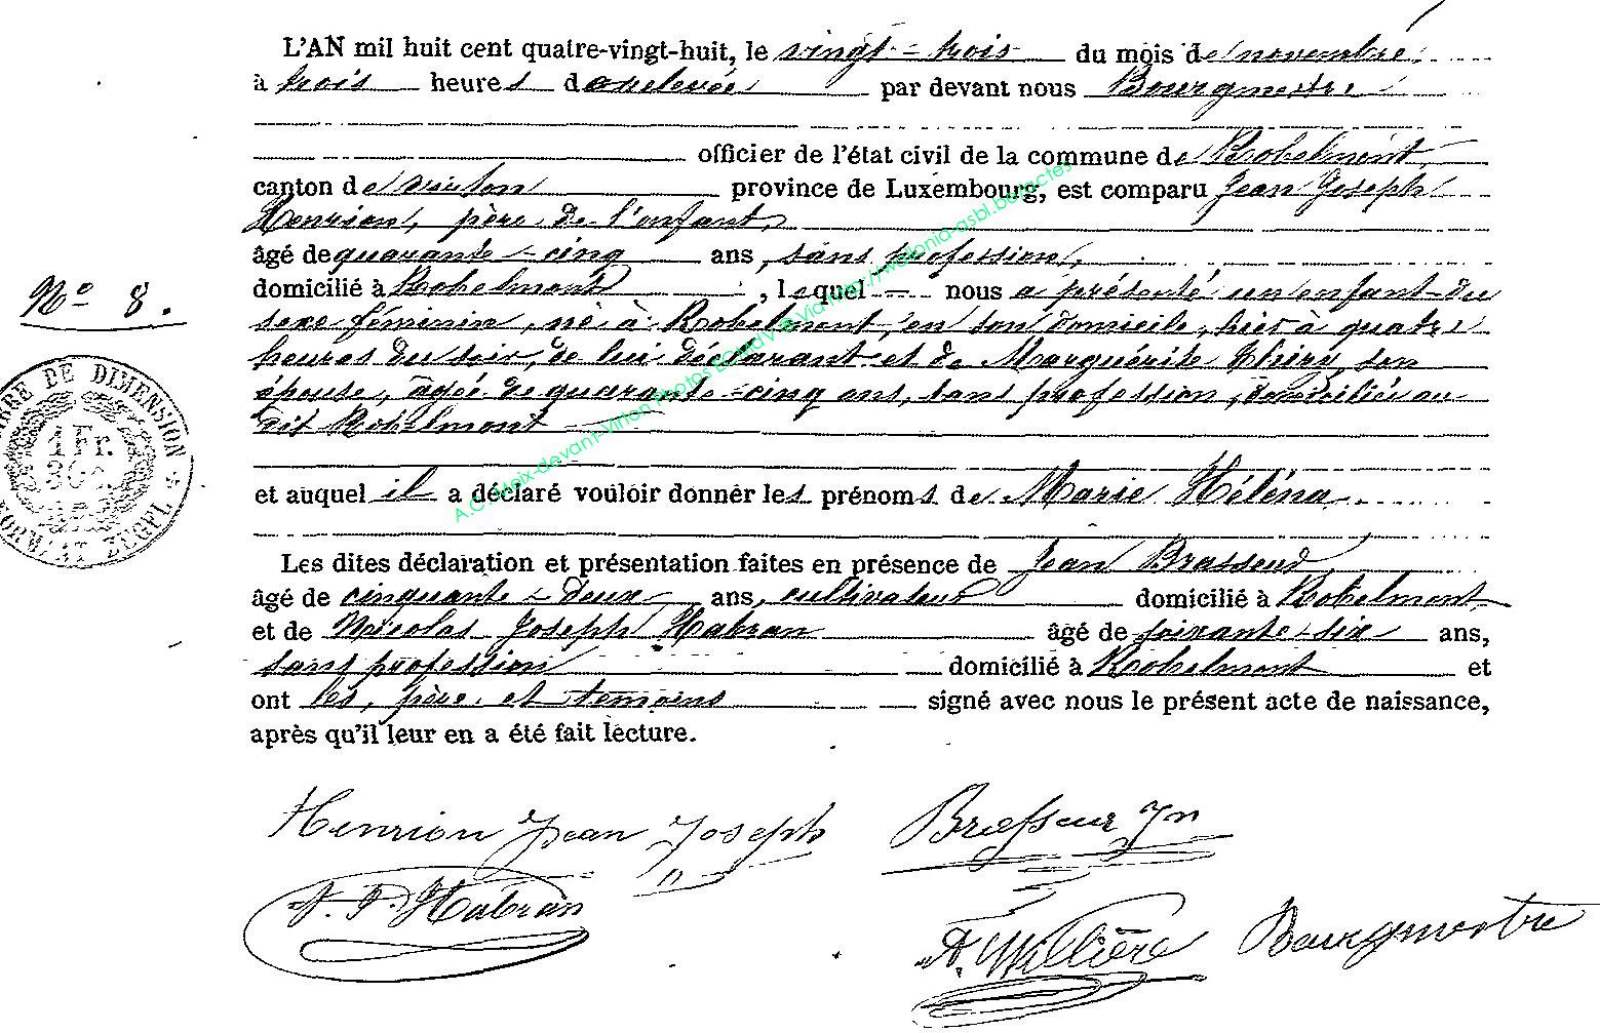 L'AN mil huit cent quatre-vingt-huit, le vingt-trois du mois de novembre
à trois heures de relevée par devant nous Bourgmestre
officier de l'état civil de la commune de Robelmont,
canton de Virton province de Luxembourg, est comparu Jean Joseph
Henrion, père de l'enfant,
âgé de quarante-cinq ans, sans profession,
domicilié à Robelmont, lequel nous a présenté un enfant du
N° 8.
sexe féminin, né à Robelmont, en son domicile, hier à quatre
heures du soir, de lui déclarant et de Marguérite Thiry, son
épouse, agée de quarante-cinq ans, sans profession, domiciliés au
dit Robelmont
TIMBRE DE DIMENSION
1 Fr.
30 c.
FORMAAT ZEGEL
et auquel il a déclaré vouloir donner les prénoms de Marie Héléna
Les dites déclaration et présentation faites en présence de Jean Brasseur,
âgé de cinquante-deux ans, cultivateur domicilié à Robelmont,
et de Nicolas Joseph Habran âgé de soixante-six ans,
sans profession domicilié à Robelmont et
ont les, père et témoins signé avec nous le présent acte de naissance,
après qu'il leur en a été fait lecture.
Henrion Jean Joseph Brasseur Jn
N. J. Habran
A. Willière Bourgmestre